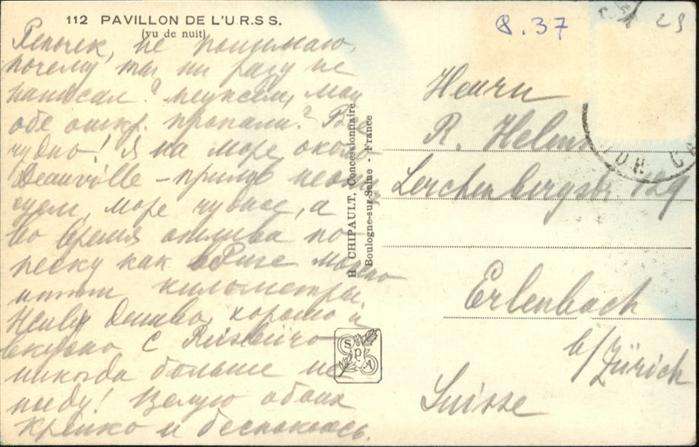 112 PAVILLON DE L'U.R.S.S.
(vu de nuit)
8.37
29
не понимаю,
почему ты ни разу не
написал? Неужели, мои
обе откр. пропали?
чудно! Я на море около
Deauville —
море чудное, а
во время отлива по
песку как в Риге можно
итти километры,
Живу дешево, хорошо и
вкусно с Reisebüro
никогда больше не
поеду! Целую обоих
крепко и беспокоюсь.
H. CHIPAULT, Concessionnaire
Boulogne-sur-Seine - France
SPA
Herrn
R. Helms
Lerchenbergstr. 129
Erlenbach
b/Zürich
Suisse